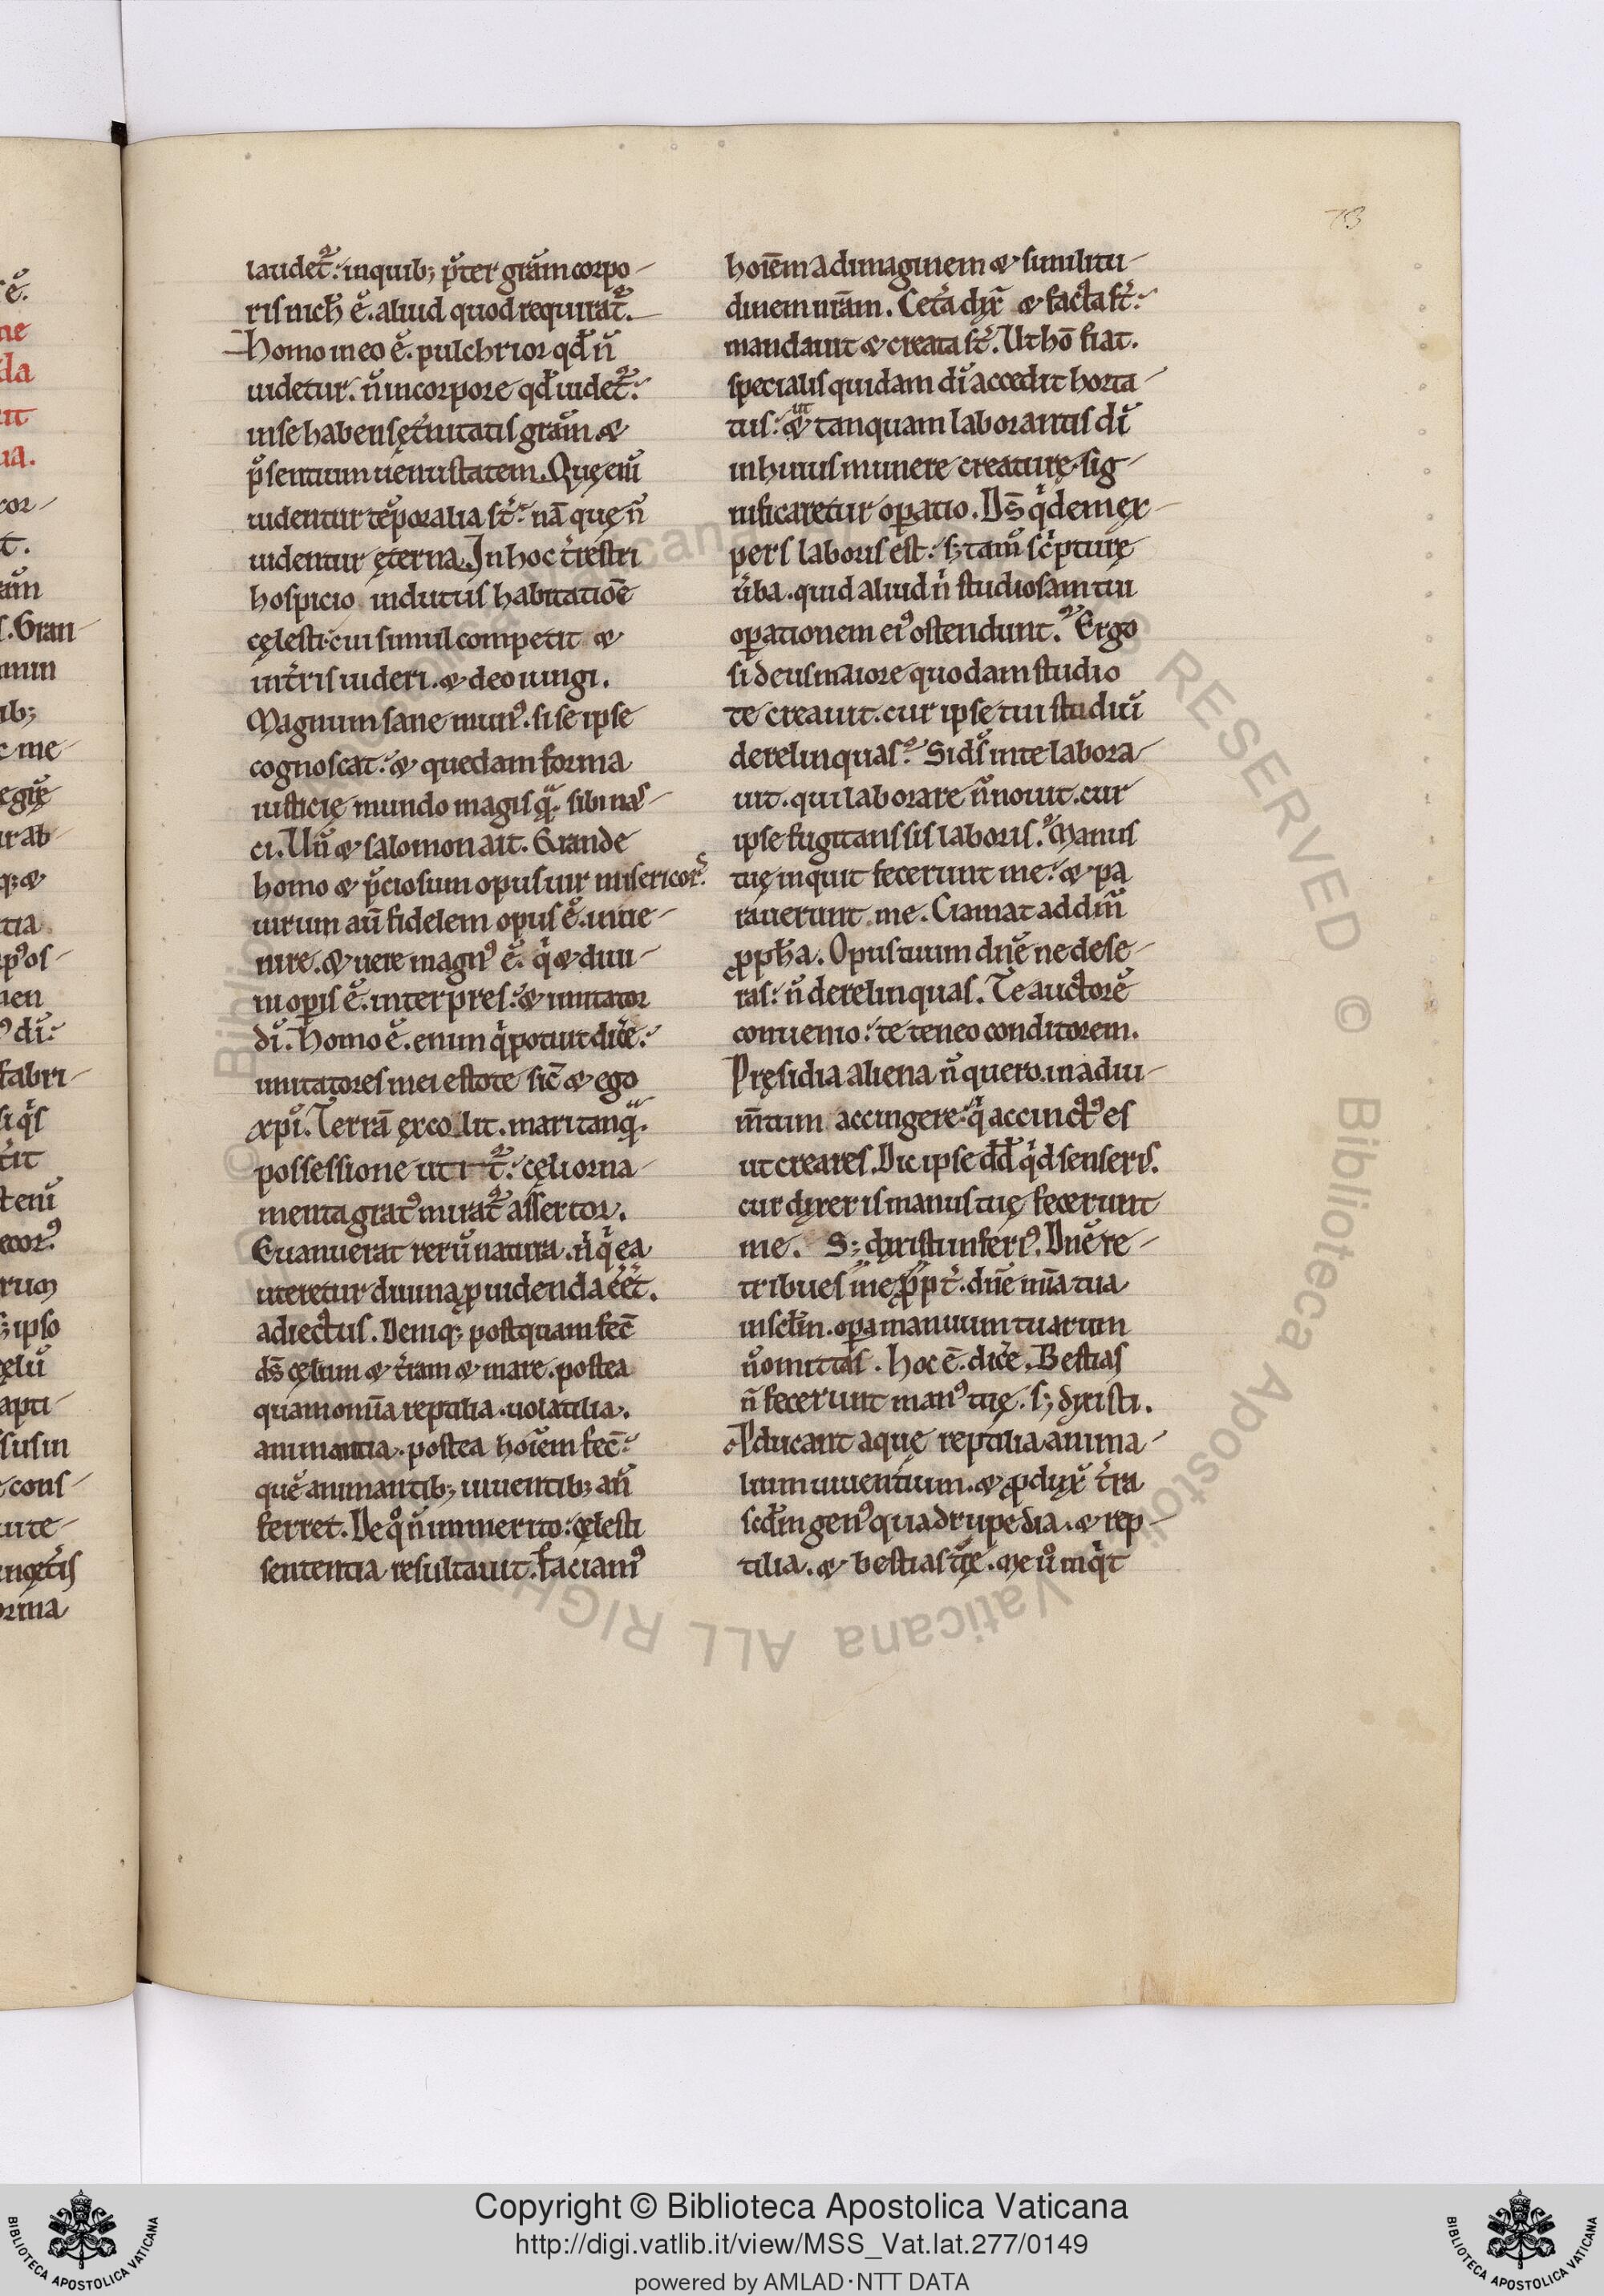 laudet᷑. inquib; p̄ter grām corpo-
ris nich̄ ē. aliud quod requirat᷑.
homo in eo ē. pulchrior qđ n̄
uidetur. n̄ in corpore qđ uidet᷑.
in se habens ęt̄nitatis grām &
p̄sentium uenustatem. Quę enī
uidentur tēporalia st̄. nā quę n̄
uidentur ęterna. In hoc t̄restri
hospicio indutus habitatiōē
cęlesti. cui simul competit &
int̄ris uideri. & deo iungi.
Magnum sane munꝰ. si se ipse
cognoscat. & quedam forma
iusticię mundo magis qͣ̄. sibi nas-
ci. Un̄ & salomon ait. Grande
homo & p̄ciosum opus uir misericor̄s.
uirum aū fidelem opus ē. inue-
nire. & uere magnꝰ ē. qͥ & diui-
ni opis ē. interpres. & imitator
dī. homo ē. enim qͥ potuit dic̄e.
imitatores mei estote sic̄ & ego
xp̄i. Terrā ęxcolit. mari tanqͣ̄.
possessione utit᷑. cęli orna-
menta gratꝰ mirat᷑ assertor.
Euanuerat rerū natura. n̄ qͥ ea
uteretur diuina ꝓuidenda eēt.
adiectus. Deniq; postquam fec̄
ds̄ cęlum & t̄ram & mare. postea
quam omīa reptilia. uolatilia.
animantia. postea hoīem fec̄.
quē animantib; uiuentib; an̄
ferret. De qͦ n̄ immerito. cęlesti
sententia resultauit. faciamꝰ
hoīēm ad imaginem & similitu-
dinem nrām. Cet̄a dix̄ & facta st̄.
mandauit & creata st̄. Ut hō fiat.
specialis quidam dī accedit horta-
tus. & ut tanquam laborantis dī
in huius munere creaturę. sig-
nificaretur oꝑatio. Ds̄ qͥdem ex-
pers laboris est. s; tam̄ sc̄pturę
ūba. quid aliud n̄ studiosam tui
oꝑationem eiꝰ ostendunt. Ergo
si deus maiore quodam studio
te creauit. cur ipse tui studiū
derelinquas. Si ds̄ in te labora-
uit. qui laborare n̄ nouit. cur
ipse fugitans sis laboris. Manus
tuę inquit fecerunt me. & pa
rauerunt me. Clamat ad dn̄m
ꝓph̄a. Opus tuum dn̄e ne dese-
ras. n̄ derelinquas. Te auctorē
conuenio. te teneo conditorem.
Pręsidia aliena n̄ quero. in adiu-
m̄tum accingere. qͥ accinctꝰ es
ut creares. Dic ipse dd̄ qͥd senseris.
cur dixeris manus tuę fecerunt
me. S; dixisti inferiꝰ. Dn̄e re-
tribues ꝓpt̄ me. dn̄e mīa tua
in scl̄m. oꝑa manuum tuarum
n̄ omittas. hoc ē. dic̄e. Bestias
n̄ fecerunt manꝰ tuę. s; dixisti.
Aducant aque reptilia anima-
lium uiuentium. & ꝓdux̄ t̄ra
scd̄m genꝰ quadrupedia. & rep-
tilia. & bestias t̄ę. me ū inqͥt
Copyright © Biblioteca Apostolica Vaticana
http://digi.vatlib.it/view/MSS_Vat.lat.277/0149
powered by AMLAD·NTT DATA